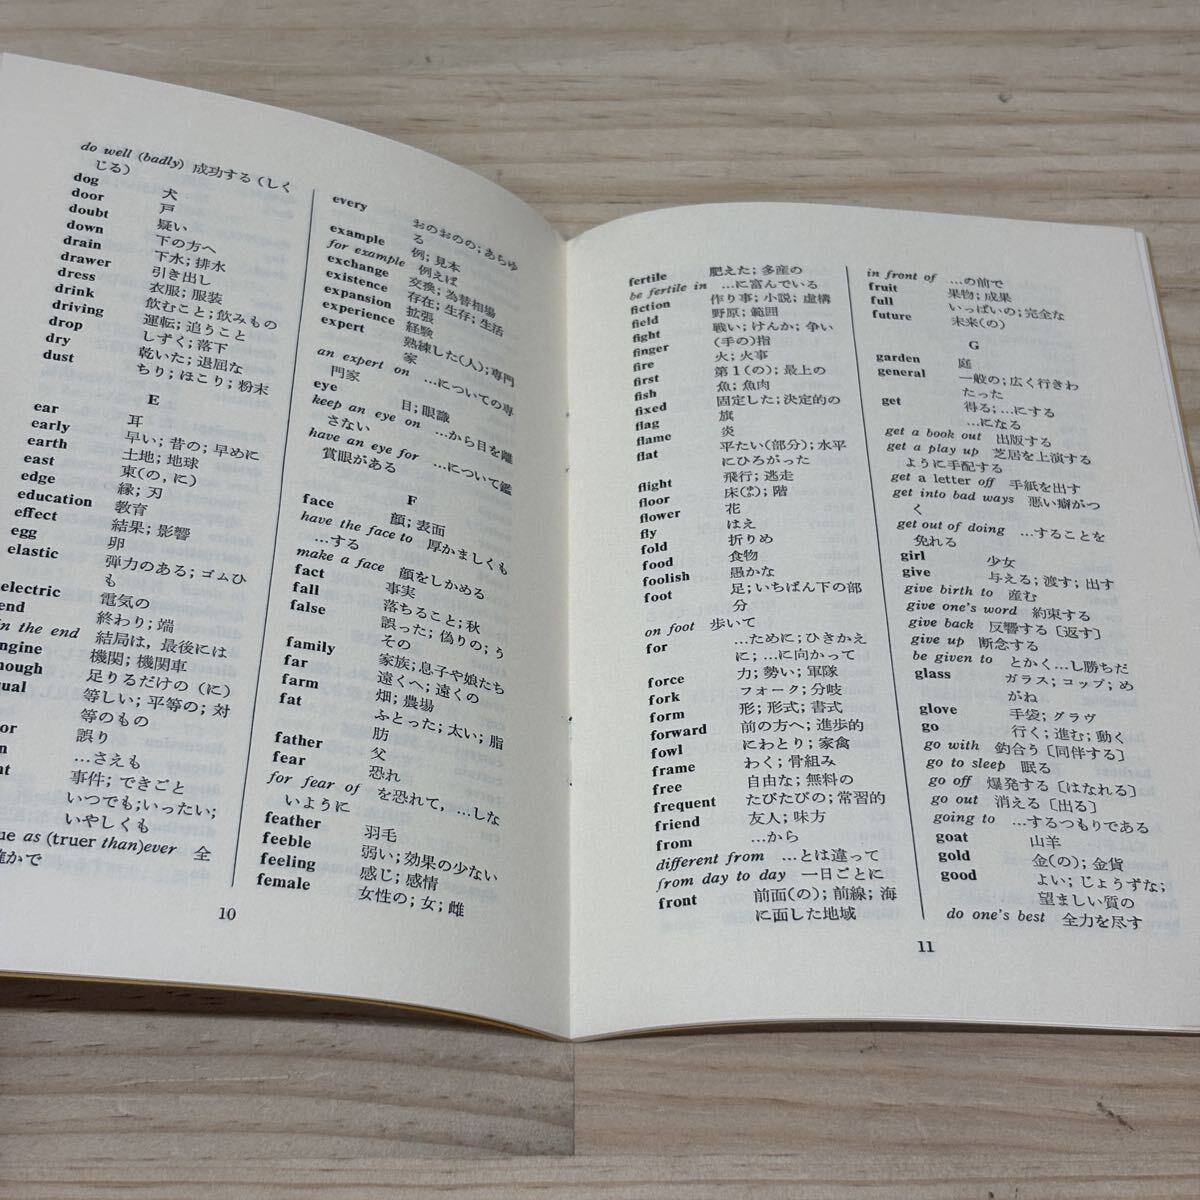 do well (badly) 成功する（しく
じる）
dog 犬
door 戸
doubt 疑い
down 下の方へ
drain 下水; 排水
drawer 引き出し
dress 衣服; 服装
drink 飲むこと; 飲みもの
driving 運転; 追うこと
drop しずく; 落下
dry 乾いた; 退屈な
dust ちり; ほこり; 粉末
E
ear 耳
early 早い; 昔の; 早めに
earth 土地; 地球
east 東(の, に)
edge 縁; 刃
education 教育
effect 結果; 影響
egg 卵
elastic 弾力のある; ゴムひ
も
electric 電気の
end 終わり; 端
in the end 結局は, 最後には
ngine 機関; 機関車
nough 足りるだけの（に）
qual 等しい; 平等の; 対
等のもの
or 誤り
n …さえも
nt 事件; できごと
いつでも; いったい;
いやしくも
ue as (truer than) ever 全
確かで
10
every おのおのの; あらゆ
る
example 例; 見本
for example 例えば
exchange 交換; 為替相場
existence 存在; 生存; 生活
expansion 拡張
experience 経験
expert 熟練した(人); 専門
家
an expert on …についての専
門家
eye 目; 眼識
keep an eye on …から目を離
さない
have an eye for …について鑑
賞眼がある
F
face 顔; 表面
have the face to 厚かましくも
…する
make a face 顔をしかめる
fact 事実
fall 落ちること; 秋
false 誤った; 偽りの; う
その
family 家族; 息子や娘たち
far 遠くへ; 遠くの
farm 畑; 農場
fat ふとった; 太い; 脂
肪
father 父
fear 恐れ
for fear of を恐れて, …しな
いように
feather 羽毛
feeble 弱い; 効果の少ない
feeling 感じ; 感情
female 女性の; 女; 雌
fertile 肥えた; 多産の
be fertile in …に富んでいる
fiction 作り事; 小説; 虚構
field 野原; 範囲
fight 戦い; けんか; 争い
finger (手の)指
fire 火; 火事
first 第1(の); 最上の
fish 魚; 魚肉
fixed 固定した; 決定的の
flag 旗
flame 炎
flat 平たい(部分); 水平
にひろがった
flight 飛行; 逃走
floor 床(ゆか); 階
flower 花
fly はえ
fold 折りめ
food 食物
foolish 愚かな
foot 足; いちばん下の部
分
on foot 歩いて
for …ために; ひきかえ
に; …に向かって
force 力; 勢い; 軍隊
fork フォーク; 分岐
form 形; 形式; 書式
forward 前の方へ; 進歩的
fowl にわとり; 家禽
frame わく; 骨組み
free 自由な; 無料の
frequent たびたびの; 常習的
friend 友人; 味方
from …から
different from …とは違って
from day to day 一日ごとに
front 前面(の); 前線; 海
に面した地域
in front of …の前で
fruit 果物; 成果
full いっぱいの; 完全な
future 未来(の)
G
garden 庭
general 一般の; 広く行きわ
たった
get 得る; …にする
…になる
get a book out 出版する
get a play up 芝居を上演する
ように手配する
get a letter off 手紙を出す
get into bad ways 悪い癖がつ
く
get out of doing …することを
免れる
girl 少女
give 与える; 渡す; 出す
give birth to 産む
give one's word 約束する
give back 反響する〔返す〕
give up 断念する
be given to とかく…し勝ちだ
glass ガラス; コップ; め
がね
glove 手袋; グラヴ
go 行く; 進む; 動く
go with 釣合う〔同伴する〕
go to sleep 眠る
go off 爆発する〔はなれる〕
go out 消える〔出る〕
going to …するつもりである
goat 山羊
gold 金(の); 金貨
good よい; じょうずな;
望ましい質の
do one's best 全力を尽す
11